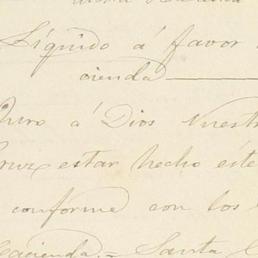 Líquido á favor
cienda
Juro á Dios Nuestr
Cruz estar hecho éste
conforme con los
Hacienda = Santa C